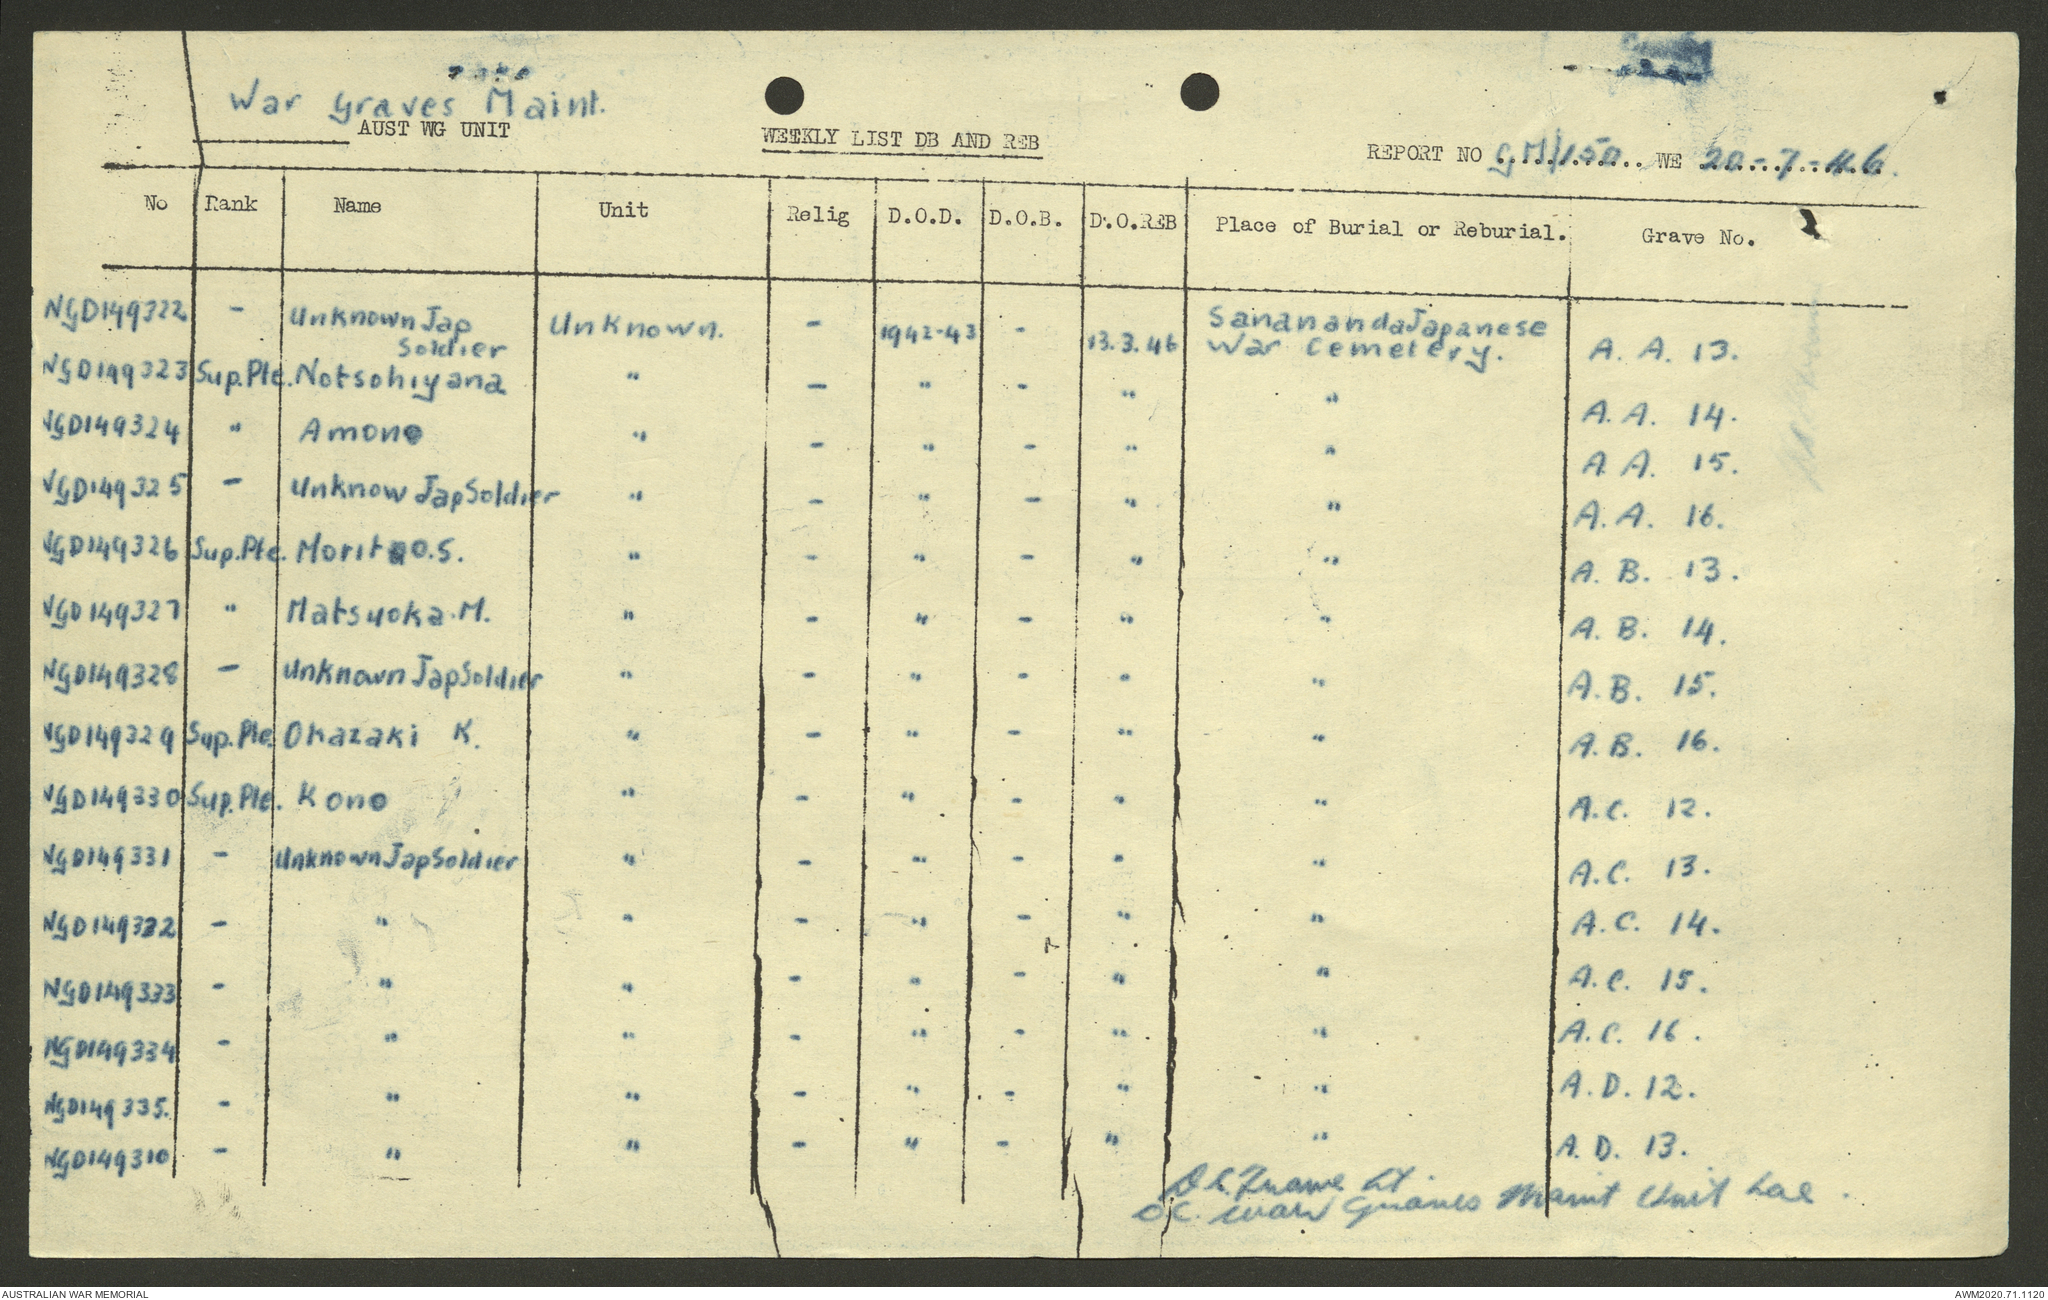 War Graves Maint.
AUST WG UNIT
WEEKLY LIST DB AND REB
REPORT NO GM/150 WE 20-7-46.
No Rank Name Unit Relig D.O.D. D.O.B. D.O.REB Place of Burial or Reburial. Grave No.
NGD149322 - Unknown Jap Soldier Unknown. - 1942-43 - 13.3.46 Sanananda Japanese War Cemetery. A. A. 13.
NGD149323 Sup.Pte. Notsohiyana " - " - " " A. A. 14.
NGD149324 " Amono " - " - " " A. A. 15.
NGD149325 - Unknow Jap Soldier " - " - " " A. A. 16.
NGD149326 Sup.Pte. Morita O.S. " - " - " " A. B. 13.
NGD149327 " Matsuoka. M. " - " - " " A. B. 14.
NGD149328 - Unknown Jap Soldier " - " - " " A. B. 15.
NGD149329 Sup.Pte. Okazaki K. " - " - " " A. B. 16.
NGD149330 Sup.Pte. Kono " - " - " " A.C. 12.
NGD149331 - Unknown Jap Soldier " - " - " " A.C. 13.
NGD149332 - " " - " - " " A.C. 14.
NGD149333 - " " - " - " " A.C. 15.
NGD149334 - " " - " - " " A.C. 16.
NGD149335. - " " - " - " " A.D. 12.
NGD149310 - " " - " - " " A.D. 13.
Lt.
OC. War Graves Maint Unit Lae.
AUSTRALIAN WAR MEMORIAL
AWM2020.71.1120